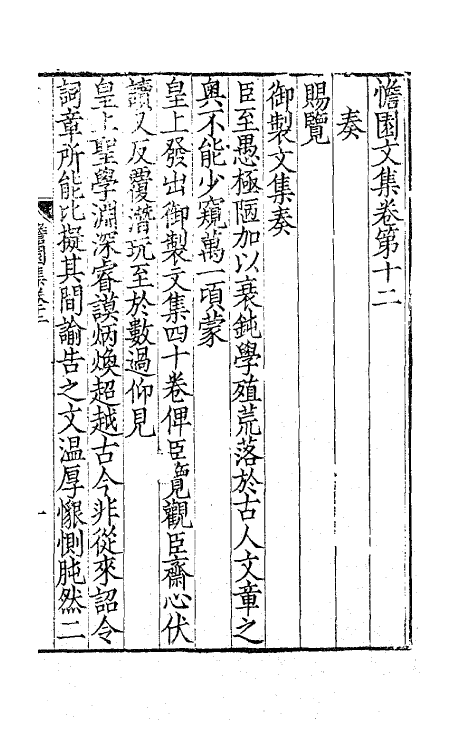 憺園文集卷第十二
奏
賜覽
御製文集奏
臣至愚極陋加以衰鈍學殖荒落於古人文章之
奥不能少窺萬一頃蒙
皇上發出御製文集四十卷俾臣覽觀臣齋心伏
讀又反覆潛玩至於數過仰見
皇上聖學淵深睿謨炳煥超越古今非從來詔令
詞章所能比擬其間諭告之文温厚懇惻肫然二
憺園集卷十二
一